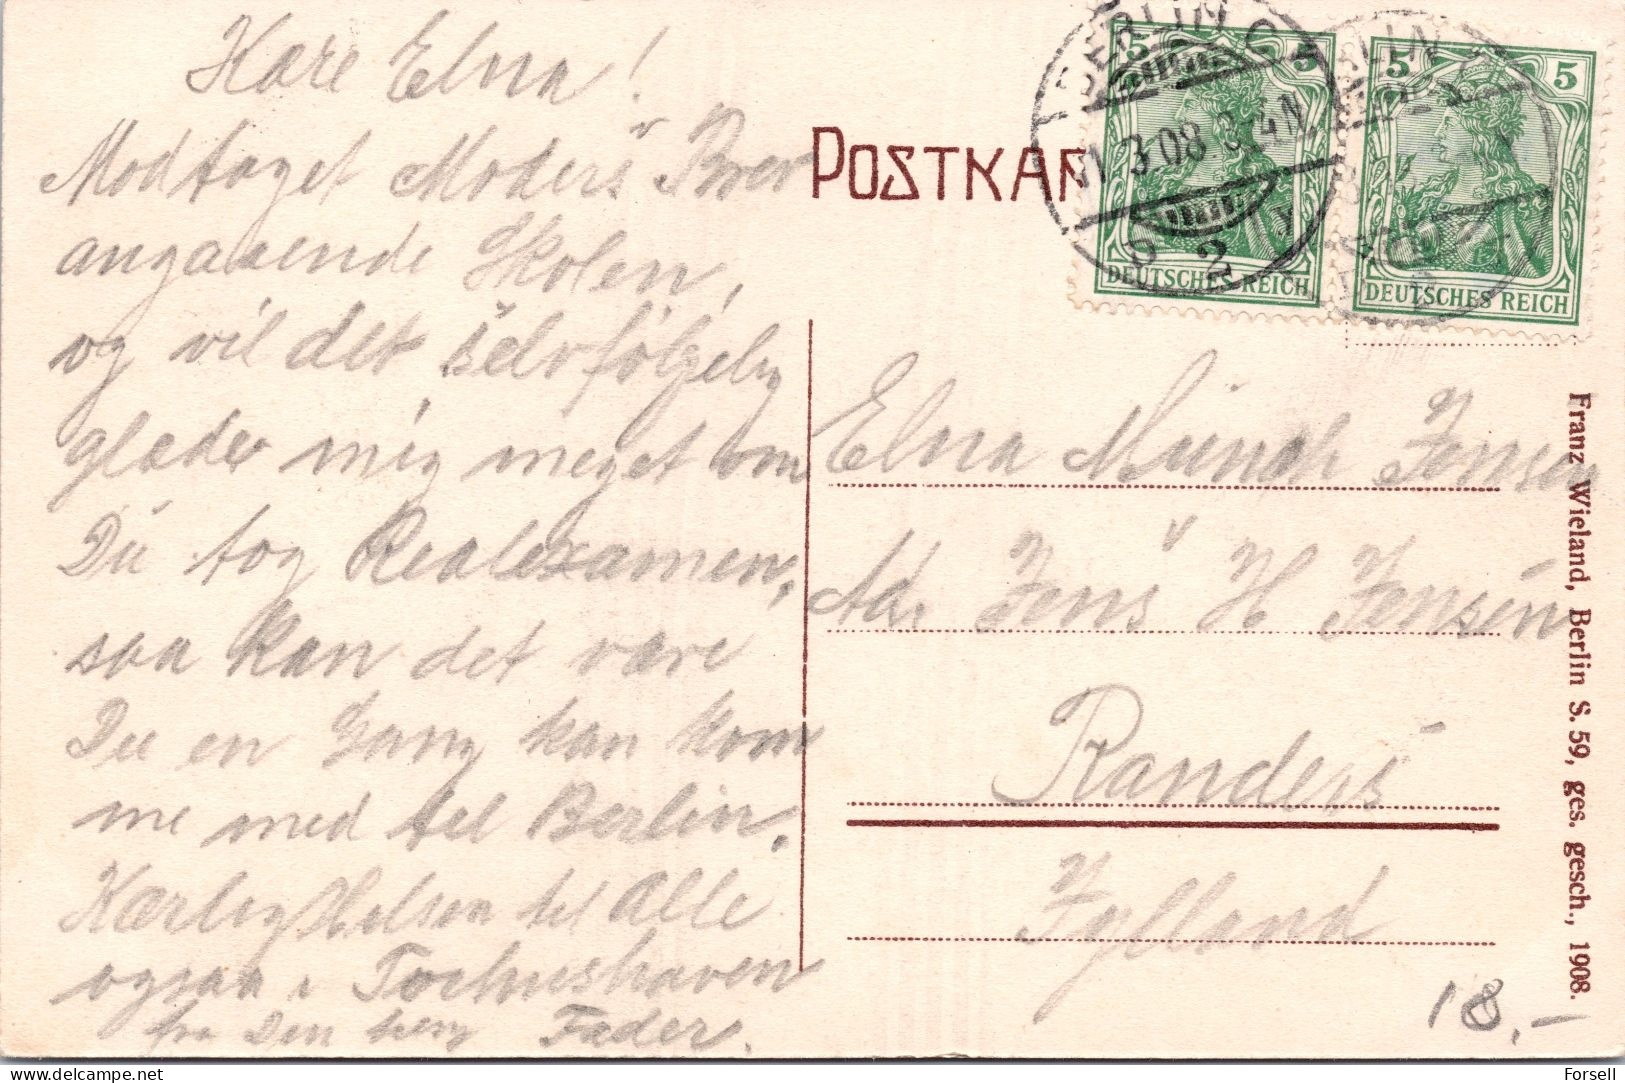 Kære Elna!
Modtaget Moders Brev
angaaende Skolen,
og vil det selvfölgelig
glæder mig meget om
Du tog Realexamen,
saa kan det være
Du en Gang kan kom
me med tel Berlin.
Kærlig Helsen tel Alle
ogsaa i
fra Din Fader.
POSTKAR
BERLIN C
3.08. 3-4N
2
5 5
DEUTSCHES REICH
5 5
DEUTSCHES REICH
Elna Münch Jensen
Adr Jens H Jensen
Randers
Jylland
Franz Wieland, Berlin S. 59, ges. gesch., 1908.
18,-
delcampe.net
Forsell